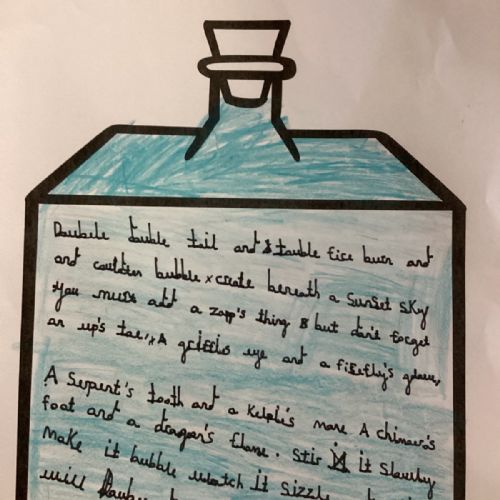 Doubele touble toil and touble fire burn and
and couldten bubble x create beneath a Sunset Sky
you must add a zapp's thing but don't forget
an up's toe, x A griffins eye and a firefly's glow,
A Serpent's tooth and a Kelpie's mane A chimaera's
foot and a dragon's flame. Stir it Slowley
make it bubble watch it Sizzle
will